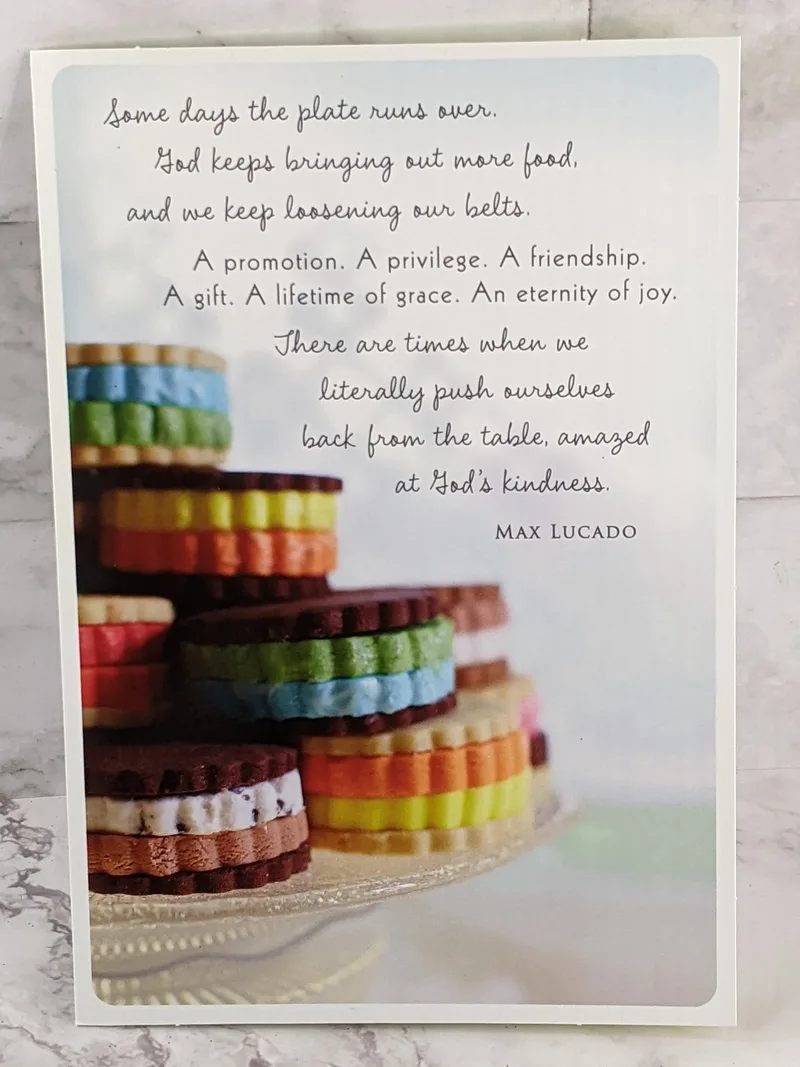 Some days the plate runs over.
God keeps bringing out more food,
and we keep loosening our belts.
A promotion. A privilege. A friendship.
A gift. A lifetime of grace. An eternity of joy.
There are times when we
literally push ourselves
back from the table, amazed
at God's kindness.
MAX LUCADO